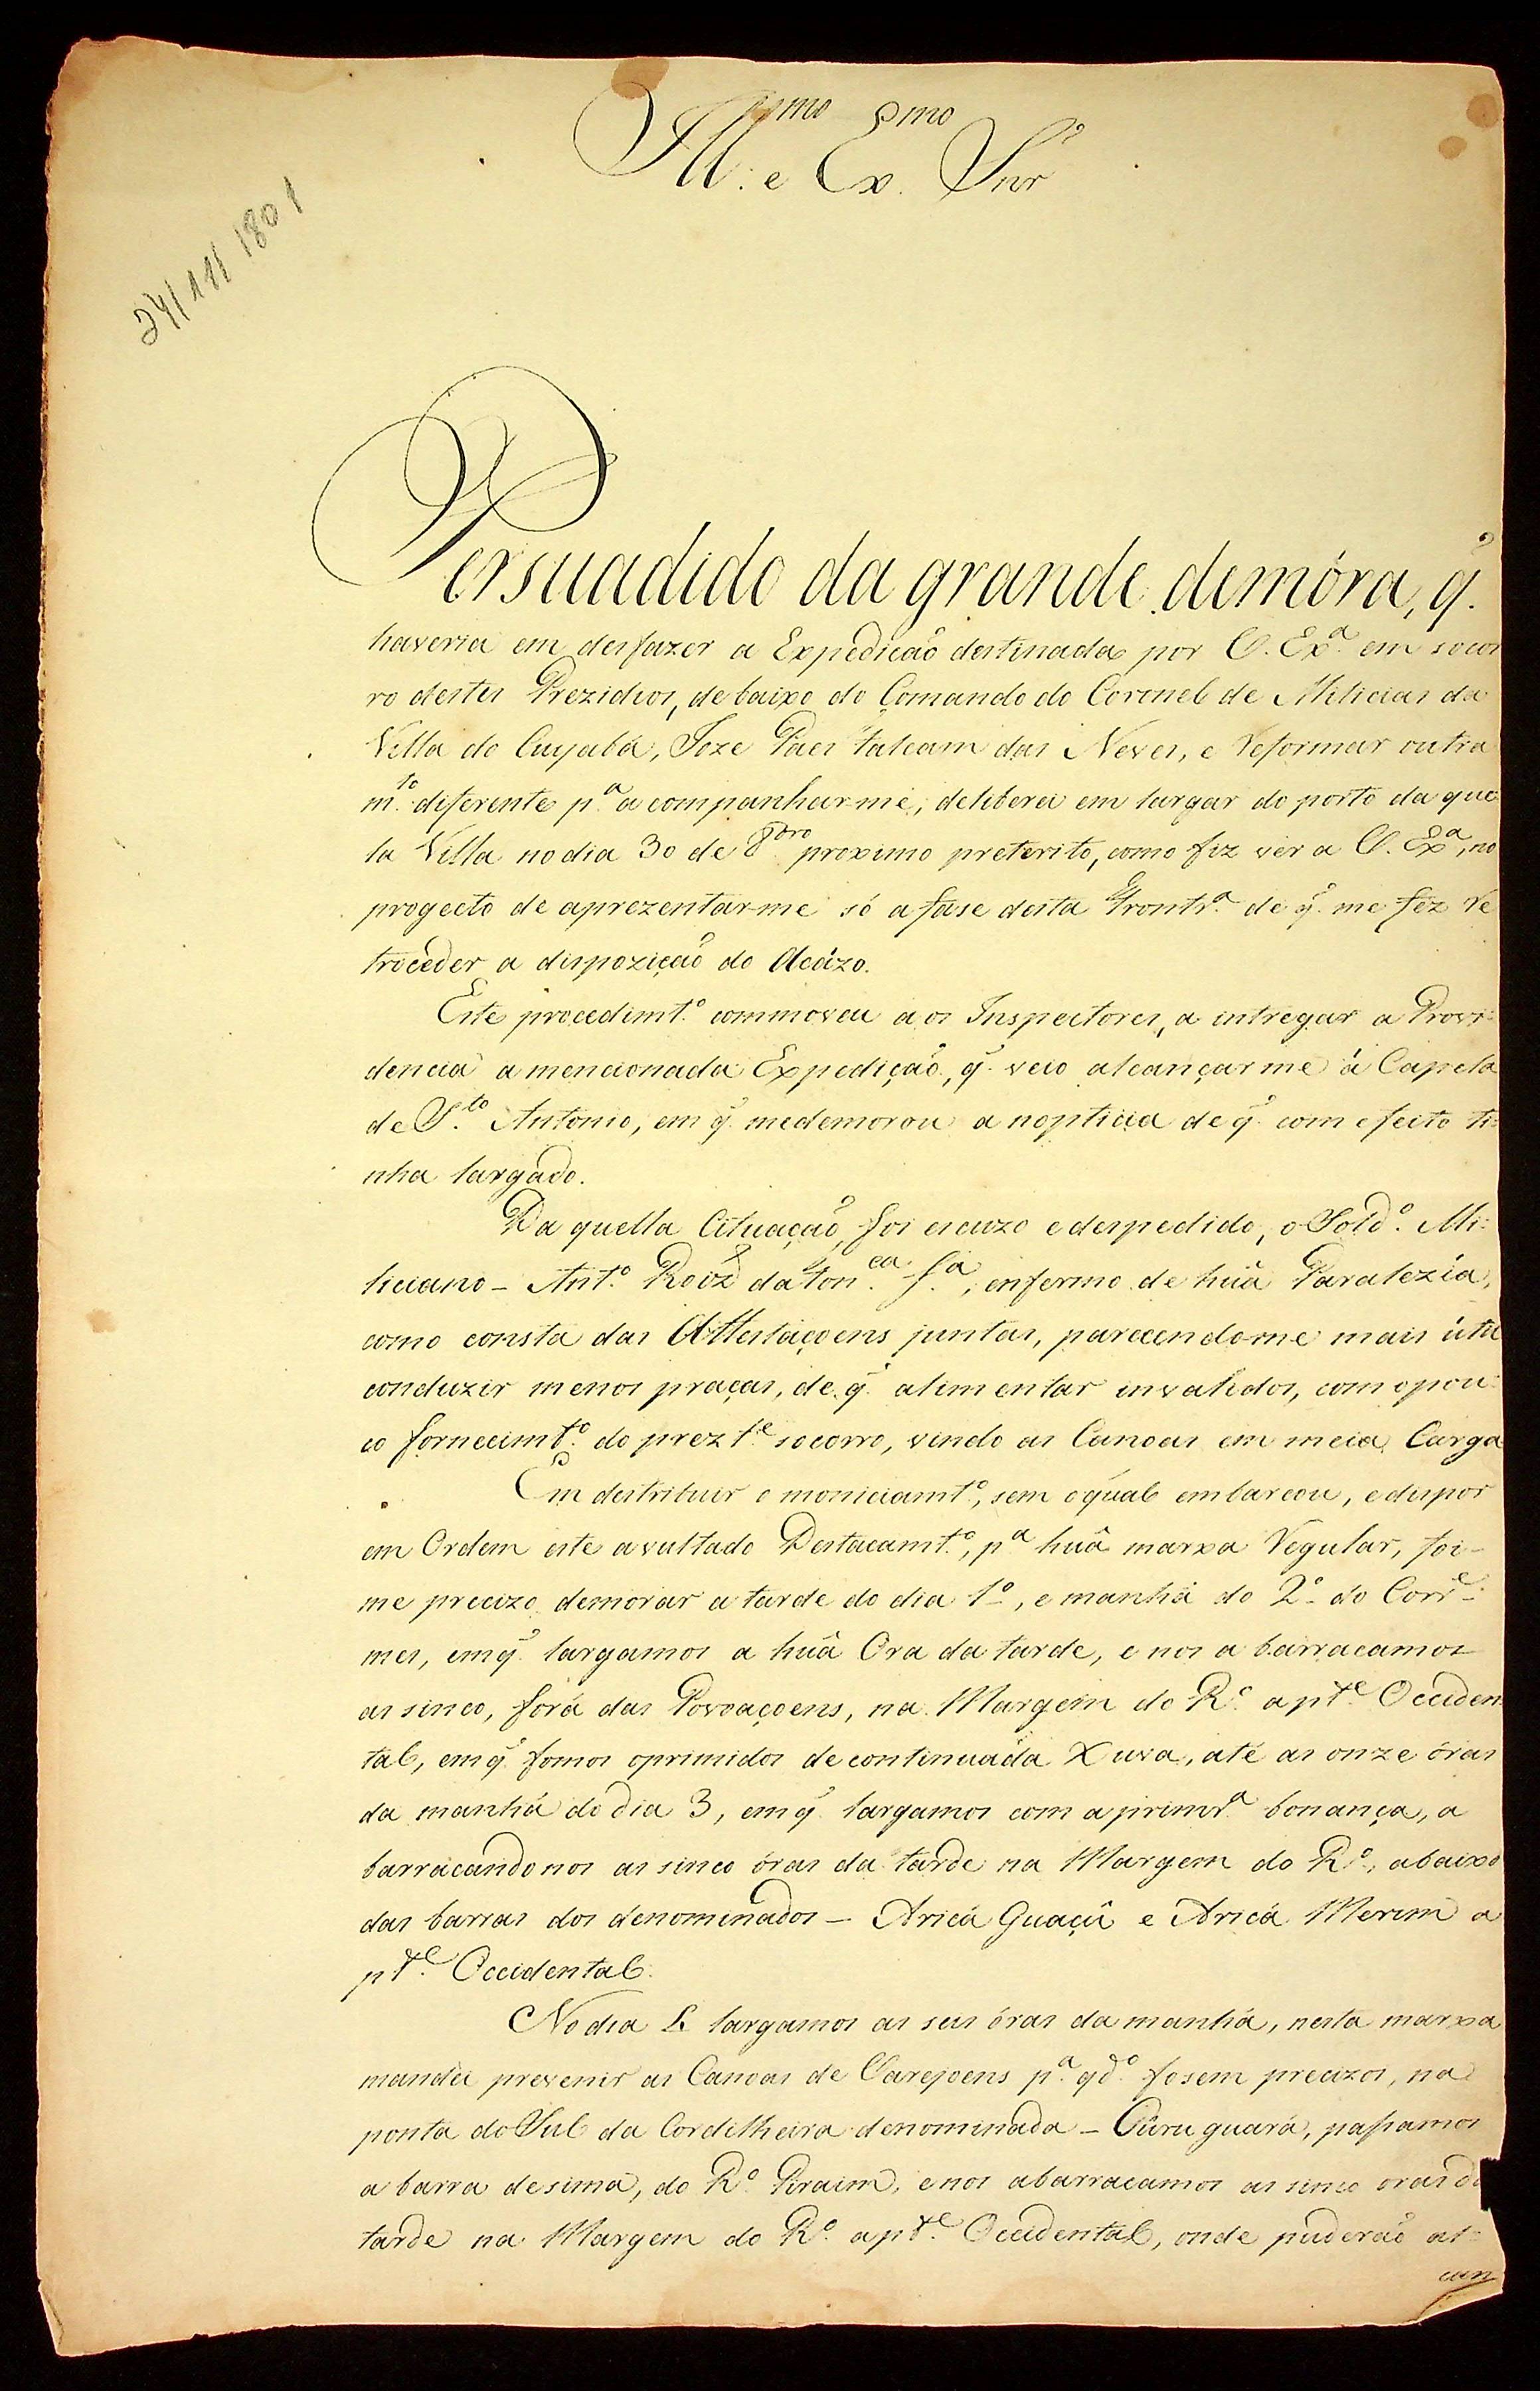 Ill.mo e Ex.mo Snr
24/11/1801
Persuadido da grande demóra, q.
haveria em desfazer a Expedicaõ destinada por V. Ex.ª em socor
ro destes Prezidios, debaixo do Comando do Coronel de Milicias da
Villa do Cuyabá, Joze Paes Falcam das Neves, e Reformar outra
m.to diferente p.ª acompanharme, deliberei em largar do porto da que
la Villa no dia 30 de 8.bro proximo preterito, como fiz ver a V. Ex.ª, no
progecto de aprezentar-me só a fase desta Frontr.ª de q̃. me fez Re
troceder a dispoziçaõ do Acázo.
Este procedimt.º commoveu a os Inspectores, a intregar a Provi-
dencia a mencionada Expediçaõ, q̃. veio alcançarme á Capela
de S.to Antonio, em q̃. medemorou a nopticia de q̃. com efeito ti-
nha largado.
Da quella Cituaçaõ, foi escuzo e despedido, o Sold.º Mi-
liciano - Ant.º Roiz da Fon.ca S.ª, enfermo de huã Paralezia,
como consta das Attestaçoens juntas, parecendo-me mais util
conduzir menos praças, de q̃. alimentar invalidos, com o pou-
co fornecimt.º do prezt.e socorro, vindo as Canoas em meia Carga
Em destribuir o moniciamt.º, sem o qual embarcou, e dispor
em Ordem este avultado Destacamt.º, p.ª huã marxa Regular, foi-
me precizo demorar a tarde do dia 1.º, e manhã do 2.º do Corr.e
mes, em q̃. largamos a huã Ora da tarde, e nos abarracamos
as sinco, forá das Povoaçoens, na Margem do R.º a pt.e Occiden
tal, em q̃. fomos oprimidos de continuáda Xuva, até as onze óras
da manhã do dia 3, em q̃. largamos com a primr.ª bonança, a
barracandonos as sinco óras da tarde na Margem do R.º, abaixo
das barras dos denominados - Aricá Guaçû e Aricá Merim a
pt.e Occidental.
No dia 4 largamos as seis óras da manhã, nesta marxa
mandei prevenir as Canoas de Varejoens p.ª qd.º fosem precizos, na
ponta do Sul da Cordilheira denominada - Curuguará, passamos
a barra desima, do R.º Piraim, e nos abarracamos as sinco oras da
tarde na Margem do R.º a pt.e Occidental, onde puderaõ al-
can